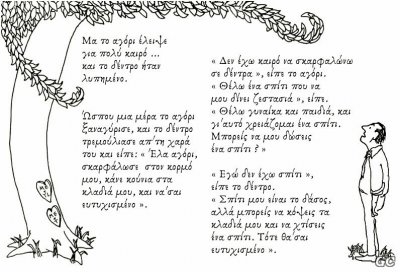 Μα το αγόρι έλειψε
για πολύ καιρό ...
και το δέντρο ήταν
λυπημένο.
Ώσπου μια μέρα το αγόρι
ξαναγύρισε, και το δέντρο
τρεμούλιασε απ'τη χαρά
του και είπε: « Έλα αγόρι,
σκαρφάλωσε στον κορμό
μου, κάνε κούνια στα
κλαδιά μου, και να'σαι
ευτυχισμένο ».
« Δεν έχω καιρό να σκαρφαλώνω
σε δέντρα », είπε το αγόρι.
« Θέλω ένα σπίτι που να
μου δίνει ζεστασιά », είπε.
« Θέλω γυναίκα και παιδιά, και
γι'αυτό χρειάζομαι ένα σπίτι.
Μπορείς να μου δώσεις
ένα σπίτι ? »
« Εγώ δεν έχω σπίτι »,
είπε το δέντρο.
« Σπίτι μου είναι το δάσος,
αλλά μπορείς να κόψεις τα
κλαδιά μου και να χτίσεις
ένα σπίτι. Τότε θα'σαι
ευτυχισμένο ».